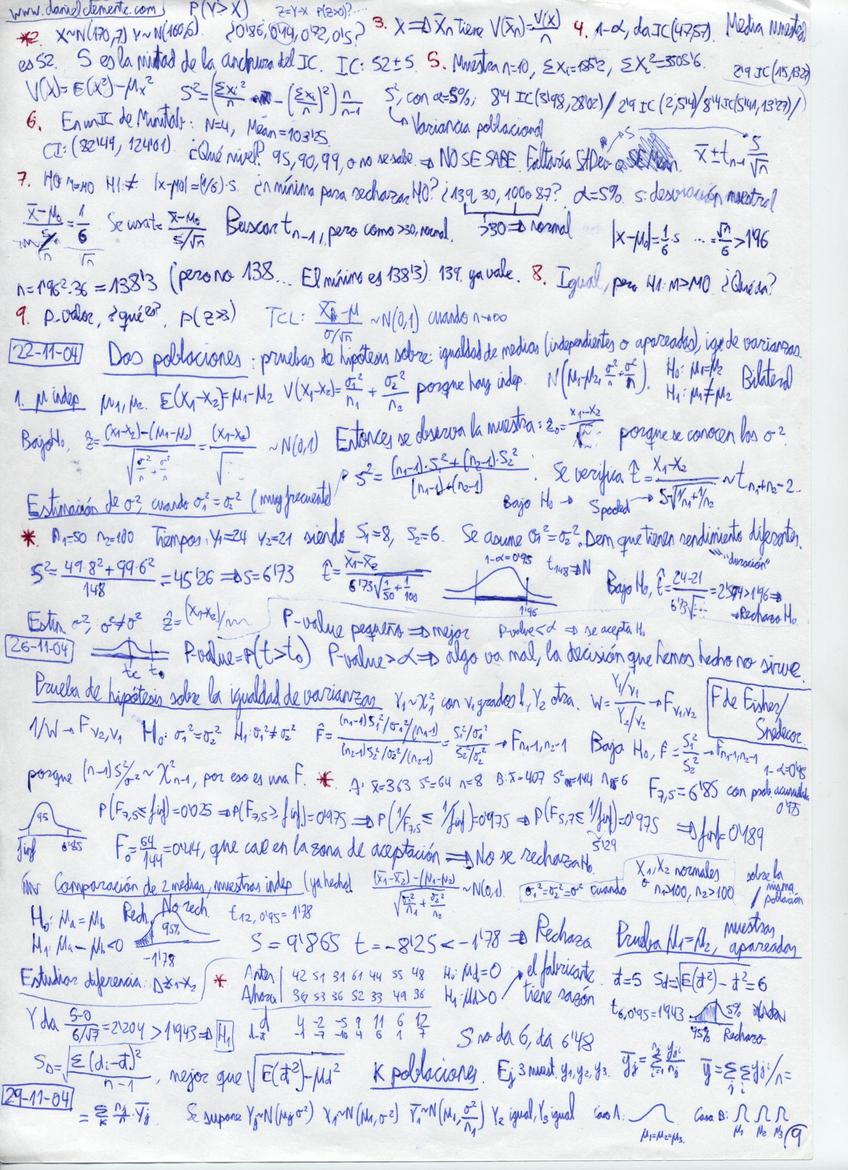 www.danielclemente.com P(Y>X) Z=Y-X P(Z>0)?
*2. X~N(170,7) Y~N(160,6). ¿0'86, 0'14, 0'92, 0'5? 3. X⇒X̄n tiene V(X̄n)=V(X)/n 4. 1-α, da IC(47,57). Media muestral
es 52. S es la mitad de la anchura del IC. IC: 52±5 5. Muestra n=10, ΣXi=185'2, ΣXi²=3505'6.
V(X)=E(X²)-μx² S²=(ΣXi²/n - (ΣXi/n)²) n/n-1 S², con α=5%: 8'4 IC(3'98, 28'02) / 2'9 IC(2,5'4) / 8'4 IC(5'41, 13'27) /
Variancia poblacional
6. En un IC de Minitab: N=4, Mean=103'25
CI: (82'49, 124'01). ¿Qué nivel? 95, 90, 99, o no se sabe ⇒ NO SE SABE. Faltaría StDev o SE Mean. x̄±t n-1 S/√n
7. H0 M=M0 H1 ≠ |x-μ0|=(1/6)·s ¿n mínima para rechazar H0? ¿139, 30, 100 o 87? α=5% s: desviación muestral
x̄-μ0/S=1/6 Se usa t=x̄-μ0/S/√n Buscar t n-1, pero como >30, normal. >30⇒normal |x-μ0|=1/6·s ... =√n/6>1'96
n=1'96²·36=138'3 (pero no 138... El mínimo es 138'3). 139 ya vale. 8. Igual, pero H1: M>M0 ¿Qué va?
9. p-valor, ¿qué es? P(Z≥) TCL: X̄n-μ/σ/√n ~N(0,1) cuando n→∞
22-11-04 Dos poblaciones: pruebas de hipótesis sobre: igualdad de medias (independientes o apareadas), ig de varianzas.
1. μ indep. μ1, μ2. E(X1-X2)=μ1-μ2 V(X1-X2)=σ1²/n1+σ2²/n2 porque hay indep. N(μ1-μ2, σ²/n+σ²/n). H0: μ1=μ2 H1: μ1≠μ2 Bilateral
Bajo H0, ẑ=(X1-X2)-(μ1-μ2)/√(σ²/n+σ²/n)=(X1-X2)/√ ~N(0,1) Entonces se observa la muestra: z0=X1-X2/√ porque se conocen los σ².
Estimación de σ², cuando σ1²=σ2² (muy frecuente) S²=(n1-1)·S1²+(n2-1)·S2²/(n1-1)+(n2-1) Se verifica t̂=X1-X2/S√(1/n1+1/n2) ~t n1+n2-2
Bajo H0 → Spooled
* n1=50 n2=100 Tiempos: Y1=24 Y2=21 siendo S1=8, S2=6. Se asume σ1²=σ2². Dem que tienen rendimiento diferentes.
"duración"
S²=49·8²+99·6²/148=45'26⇒S=6'73 t̂=X̄1-X̄2/6'73√(1/50+1/100) 1-α=0'95 1'96 t148⇒N Bajo H0, t̂=24-21/6'73√...=2'574>1'96⇒ Rechazo H0
Estim σ², σ²≠σ² ẑ=(X1-X2)/ P-value pequeño⇒mejor p-value<α ⇒ se acepta H1
26-11-04 tc t0 P-value=P(t>t0) P-value>α⇒ algo va mal, la decisión que hemos hecho no sirve.
Prueba de hipótesis sobre la igualdad de varianzas Y1~X1² con v1 grados l, Y2 otra. W=Y1/v1/Y2/v2→F v1,v2 F de Fisher/Snedecor
1/W→F v2,v1 H0: σ1²=σ2² H1: σ1²≠σ2² F̂=(n1-1)S1²/σ1²/(n1-1)/(n2-1)S2²/σ2²/(n2-1)=S1²/σ1²/S2²/σ2²→F n1-1,n2-1 Bajo H0, F̂=S1²/S2²→F n1-1,n2-1
porque (n-1)S²/σ²~X²n-1, por eso es una F. * A: x̄=363 S²=64 n=8 B: x̄=407 S²=144 n=6 F7,5=6'85 con prob. acumulada 0'975 1-α=0'95
95 finf 6'85 P(F7,5≤finf)=0'025⇒P(F7,5≥finf)=0'975⇒P(1/F7,5≤1/finf)=0'975⇒P(F5,7≤1/finf)=0'975 5'29 ⇒finf=0'189
F0=64/144=0'44, que cae en la zona de aceptación ⇒ No se rechaza H0.
Comparación de 2 medias, muestras indep (ya hecho) (X̄1-X̄2)-(μ1-μ2)/√(σ1²/n1+σ2²/n2) ~N(0,1). σ1²=σ2²=σ² cuando X1, X2 normales o n1>100, n2>100 sobre la misma población
H0: μa=μb Rech. No rech. 95% -1'78 t12, 0'95=1'78
H1: μa-μb<0 S=9'865 t=-8'25<-1'78 ⇒ Rechaza Prueba μ1=μ2, muestras apareadas
Estudiar diferencia: D=X1-X2 * Antes 42 51 31 61 44 55 48 H0: μd=0 el fabricante tiene razón d̄=5 Sd=√(E(d²)-d̄²)=6
Ahora 38 53 36 52 33 49 36 H1: μd>0 t6,0'95=1'943 5% 95% Rechazo
Y da 5-0/6/√7=2'204>1'943⇒H1 d 4 -2 -5 9 11 6 12
d-d̄ -1 -7 -10 4 6 1 7 S no da 6, da 6'48
SD=√(Σ(di-d̄)²/n-1), mejor que √(E(d²)-μd²) K poblaciones. Ej 3 muest. y1, y2, y3. ȳj=Σ yji/nj ȳ=ΣΣyji/n=
29-11-04 =Σ nj/n·ȳj Se supone Yj~N(μj,σ²) Y1~N(μ1,σ²) Ȳ1~N(μ1,σ²/n1) Y2 igual, Y3 igual Caso A: μ1=μ2=μ3. Caso B: μ1 μ2 μ3
9